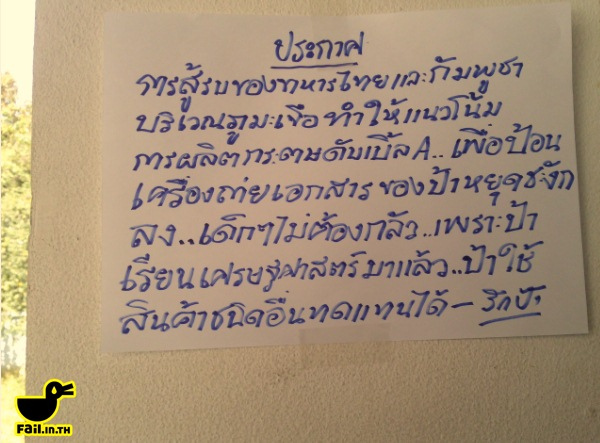 ประกาศ
การสู้รบของทหารไทยและกัมพูชา
บริเวณภูมะเขือ ทำให้แนวโน้ม
การผลิตกระดาษดับเบิ้ล A.. เพื่อป้อน
เครื่องถ่ายเอกสารของป้าหยุดชะงัก
ลง..เด็กๆไม่ต้องกลัว..เพราะป้า
เรียนเศรษฐศาสตร์มาแล้ว..ป้าใช้
สินค้าชนิดอื่นทดแทนได้ — รักป้า
FAiL.in.TH